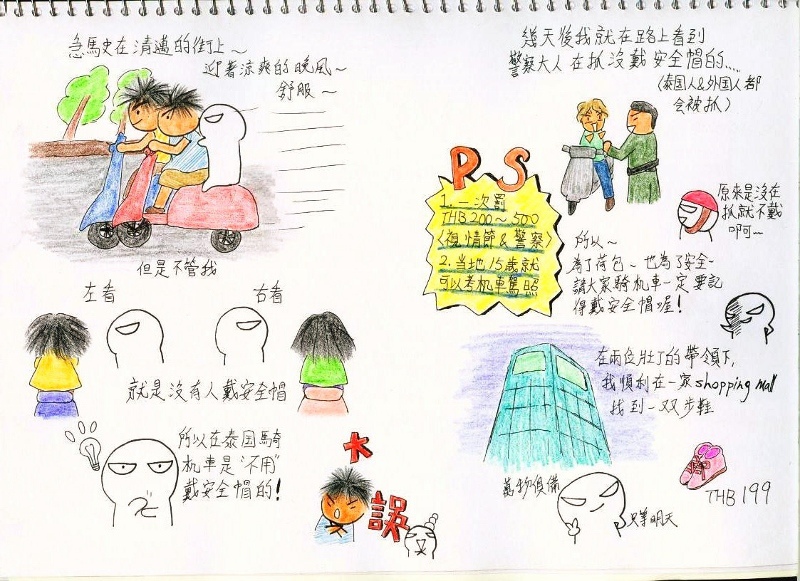 急馬史在清邁的街上~
迎著涼爽的晚風~
舒服~
但是不管我
左看
右看
就是沒有人戴安全帽
所以在泰国騎
机車是"不用"
戴安全帽的!
大
誤
幾天後我就在路上看到
警察大人在抓沒戴安全帽的.....
(泰国人&外国人都
會被抓)
PS
1. 一次罰
THB 200~500
〈視情節&警察〉
2. 当地15歲就
可以考机車駕照
原來是沒在
抓就不戴
啊~
所以~
為了荷包~也為了安全~
請大家騎机車一定要記
得戴安全帽喔!
在兩位壯丁的帶領下,
我順利在一家shopping mall
找到一双步鞋
THB 199
萬物俱備
只等明天